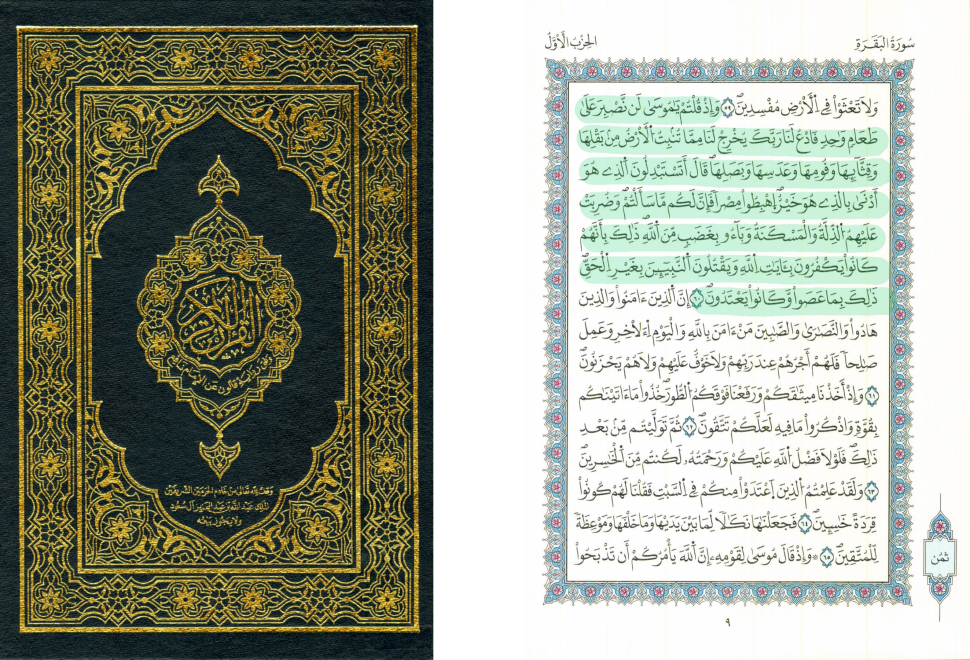 القرآن الكريم
وفق رواية قالون عن الإمام نافع
وقف لله تعالى من خادم الحرمين الشريفين
الملك عبد الله بن عبد العزيز آل سعود
ولا يجوز بيعه
سُورَةُ البَقَرَةِ
الحِزْبُ الأَوَّلُ
وَلَا تَعْثَوْاْ فِي اِ۬لْأَرْضِ مُفْسِدِينَۖ ٥٩ وَإِذْ قُلْتُمْ يَٰمُوسَىٰ لَن نَّصْبِرَ عَلَىٰ
طَعَامٖ وَٰحِدٖ فَادْعُ لَنَا رَبَّكَ يُخْرِجْ لَنَا مِمَّا تُنۢبِتُ اُ۬لْأَرْضُ مِنۢ بَقْلِهَا
وَقِثَّآئِهَا وَفُومِهَا وَعَدَسِهَا وَبَصَلِهَاۖ قَالَ أَتَسْتَبْدِلُونَ اَ۬لذِے هُوَ
أَدْنَىٰ بِالذِے هُوَ خَيْرٌۖ اِ۪هْبِطُواْ مِصْراٗ فَإِنَّ لَكُم مَّا سَأَلْتُمْۖ وَضُرِبَتْ
عَلَيْهِمُ اُ۬لذِّلَّةُ وَالْمَسْكَنَةُ وَبَآءُو بِغَضَبٖ مِّنَ اَ۬للَّهِۖ ذَٰلِكَ بِأَنَّهُمْ
كَانُواْ يَكْفُرُونَ بِـَٔايَٰتِ اِ۬للَّهِ وَيَقْتُلُونَ اَ۬لنَّبِيٓـِٕينَ بِغَيْرِ اِ۬لْحَقِّۖ
ذَٰلِكَ بِمَا عَصَواْ وَّكَانُواْ يَعْتَدُونَۖ ٦٠ إِنَّ اَ۬لذِينَ ءَامَنُواْ وَالذِينَ
هَادُواْ وَالنَّصَٰرَىٰ وَالصَّٰبِينَ مَنْ ءَامَنَ بِاللَّهِ وَالْيَوْمِ اِ۬لْأٓخِرِ وَعَمِلَ
صَٰلِحاٗ فَلَهُمْ أَجْرُهُمْ عِندَ رَبِّهِمْ وَلَا خَوْفٌ عَلَيْهِمْ وَلَا هُمْ يَحْزَنُونَۖ
٦١ وَإِذْ أَخَذْنَا مِيثَٰقَكُمْ وَرَفَعْنَا فَوْقَكُمُ اُ۬لطُّورَۖ خُذُواْ مَآ ءَاتَيْنَٰكُم
بِقُوَّةٖ وَاذْكُرُواْ مَا فِيهِ لَعَلَّكُمْ تَتَّقُونَۖ ٦٢ ثُمَّ تَوَلَّيْتُم مِّنۢ بَعْدِ
ذَٰلِكَۖ فَلَوْلَا فَضْلُ اُ۬للَّهِ عَلَيْكُمْ وَرَحْمَتُهُۥ لَكُنتُم مِّنَ اَ۬لْخَٰسِرِينَۖ
٦٣ وَلَقَدْ عَلِمْتُمُ اُ۬لذِينَ اَ۪عْتَدَوْاْ مِنكُمْ فِي اِ۬لسَّبْتِ فَقُلْنَا لَهُمْ كُونُواْ
قِرَدَةً خَٰسِـِٕينَۖ ٦٤ فَجَعَلْنَٰهَا نَكَٰلاٗ لِّمَا بَيْنَ يَدَيْهَا وَمَا خَلْفَهَا وَمَوْعِظَةٗ
لِّلْمُتَّقِينَۖ ٦٥ ۞وَإِذْ قَالَ مُوسَىٰ لِقَوْمِهِۦٓ إِنَّ اَ۬للَّهَ يَأْمُرُكُمْ أَن تَذْبَحُواْ
ثُمُن
٩